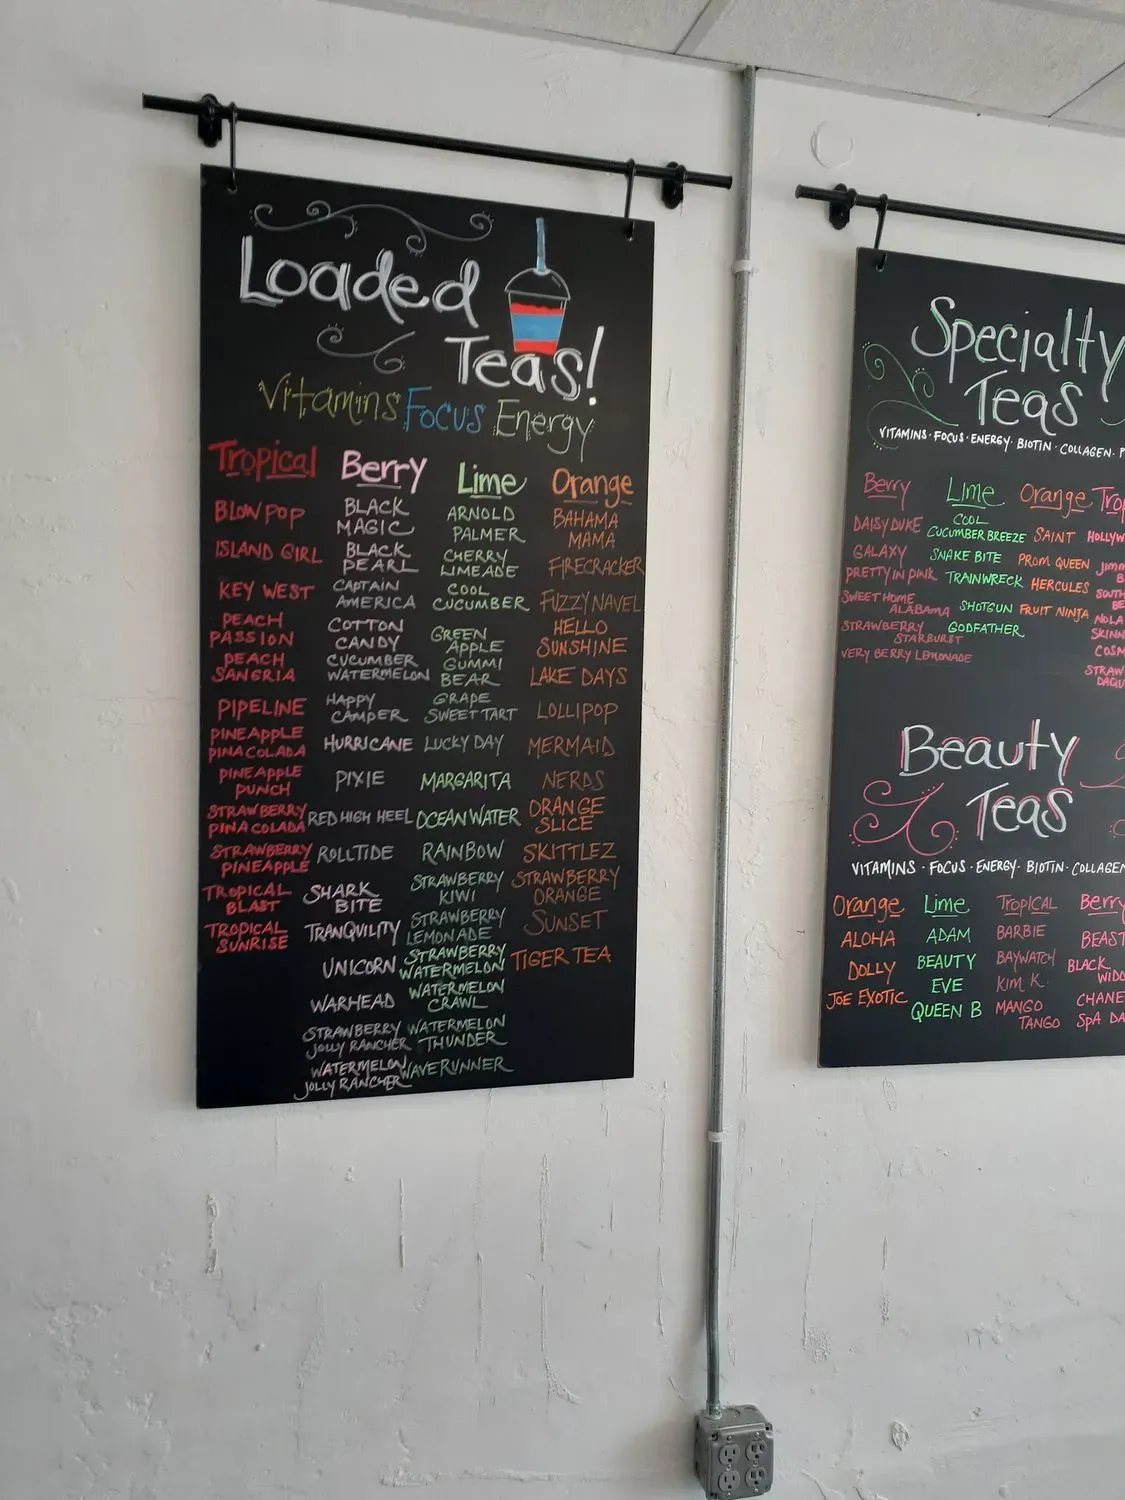 Loaded
Teas!
Vitamins Focus Energy
Tropical
BLOW POP
ISLAND GIRL
KEY WEST
PEACH
PASSION
PEACH
SANGRIA
PIPELINE
PINEAPPLE
PINA COLADA
PINEAPPLE
PUNCH
STRAWBERRY
PINA COLADA
STRAWBERRY
PINEAPPLE
TROPICAL
BLAST
TROPICAL
SUNRISE
Berry
BLACK
MAGIC
BLACK
PEARL
CAPTAIN
AMERICA
COTTON
CANDY
CUCUMBER
WATERMELON
HAPPY
CAMPER
HURRICANE
PIXIE
RED HIGH HEEL
ROLLTIDE
SHARK
BITE
TRANQUILITY
UNICORN
WARHEAD
STRAWBERRY
JOLLY RANCHER
WATERMELON
JOLLY RANCHER
Lime
ARNOLD
PALMER
CHERRY
LIMEADE
COOL
CUCUMBER
GREEN
APPLE
GUMMI
BEAR
GRAPE
SWEET TART
LUCKY DAY
MARGARITA
OCEAN WATER
RAINBOW
STRAWBERRY
KIWI
STRAWBERRY
LEMONADE
STRAWBERRY
WATERMELON
WATERMELON
CRAWL
WATERMELON
THUNDER
WAVERUNNER
Orange
BAHAMA
MAMA
FIRECRACKER
FUZZY NAVEL
HELLO
SUNSHINE
LAKE DAYS
LOLLIPOP
MERMAID
NERDS
ORANGE
SLICE
SKITTLEZ
STRAWBERRY
ORANGE
SUNSET
TIGER TEA
Specialty
Teas
VITAMINS · FOCUS · ENERGY · BIOTIN · COLLAGEN · P
Berry
DAISY DUKE
GALAXY
PRETTY IN PINK
SWEET HOME
ALABAMA
STRAWBERRY
STARBURST
VERY BERRY LEMONADE
Lime
COOL
CUCUMBER BREEZE
SNAKE BITE
TRAINWRECK
SHOTGUN
GODFATHER
Orange
SAINT
PROM QUEEN
HERCULES
FRUIT NINJA
Trop
HOLLYW
Jimm
B
SOUTH
BE
NOLA
SKINN
COSM
STRAW
DAQU
Beauty
Teas
VITAMINS · FOCUS · ENERGY · BIOTIN · COLLAGEN
Orange
ALOHA
DOLLY
JOE EXOTIC
Lime
ADAM
BEAUTY
EVE
QUEEN B
Tropical
BARBIE
BAYWATCH
KIM K.
MANGO
TANGO
Berry
BEAST
BLACK
WIDO
CHANE
SPA DA